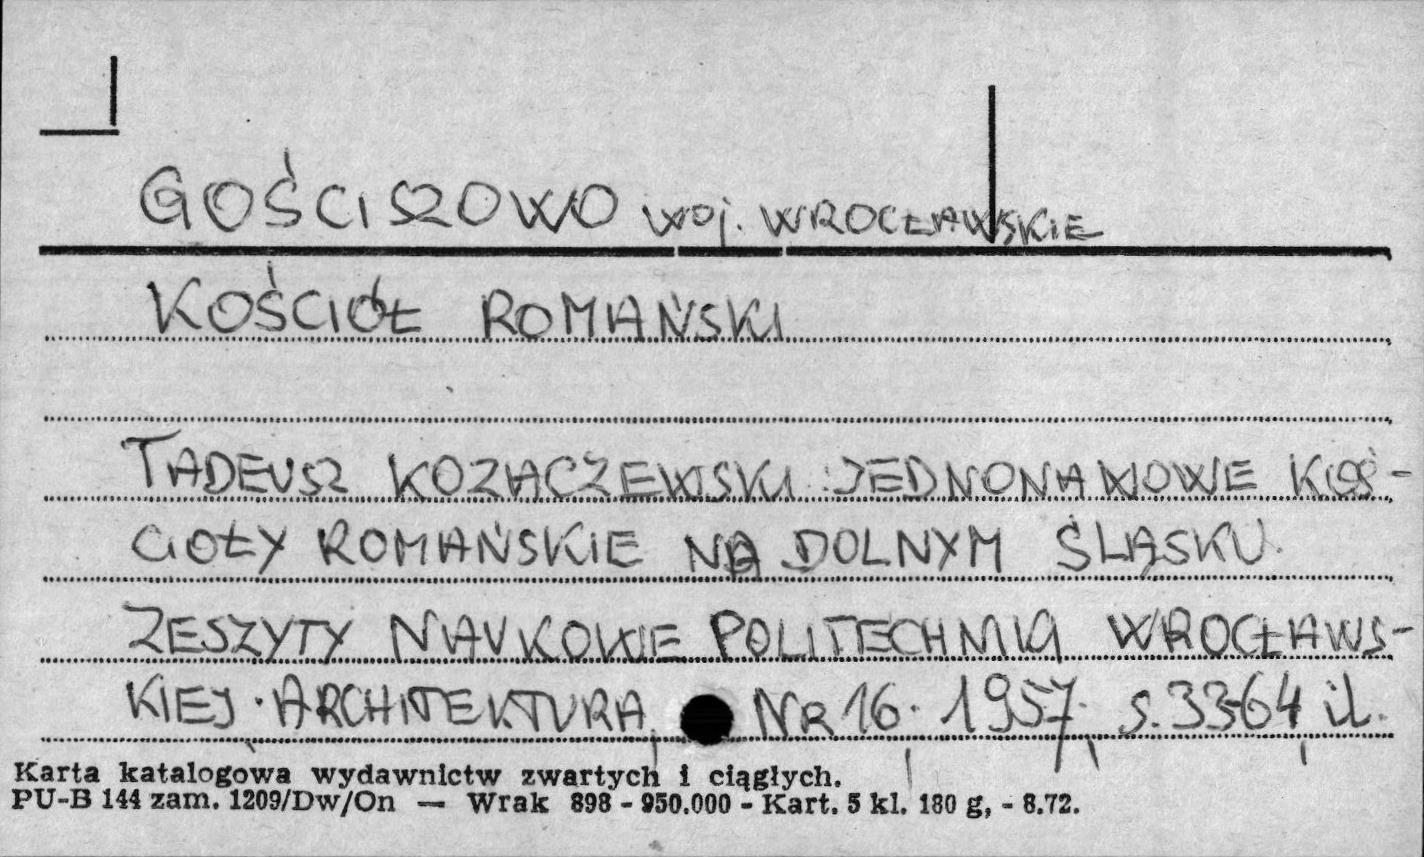 GOŚCISZOWO woj. WROCŁAWSKIE
KOŚCIÓŁ ROMAŃSKI
TADEUSZ KOZACZEWSKI: JEDNONAWOWE KOŚ-
CIOŁY ROMAŃSKIE NA DOLNYM ŚLĄSKU.
ZESZYTY NAUKOWE POLITECHNIKI WROCŁAWS-
KIEJ. ARCHITEKTURA, NR 16. 1957. s. 33-64, il.
Karta katalogowa wydawnictw zwartych i ciągłych.
PU-B 144 zam. 1209/Dw/On — Wrak 898 - 950.000 - Kart. 5 kl. 180 g, - 8.72.